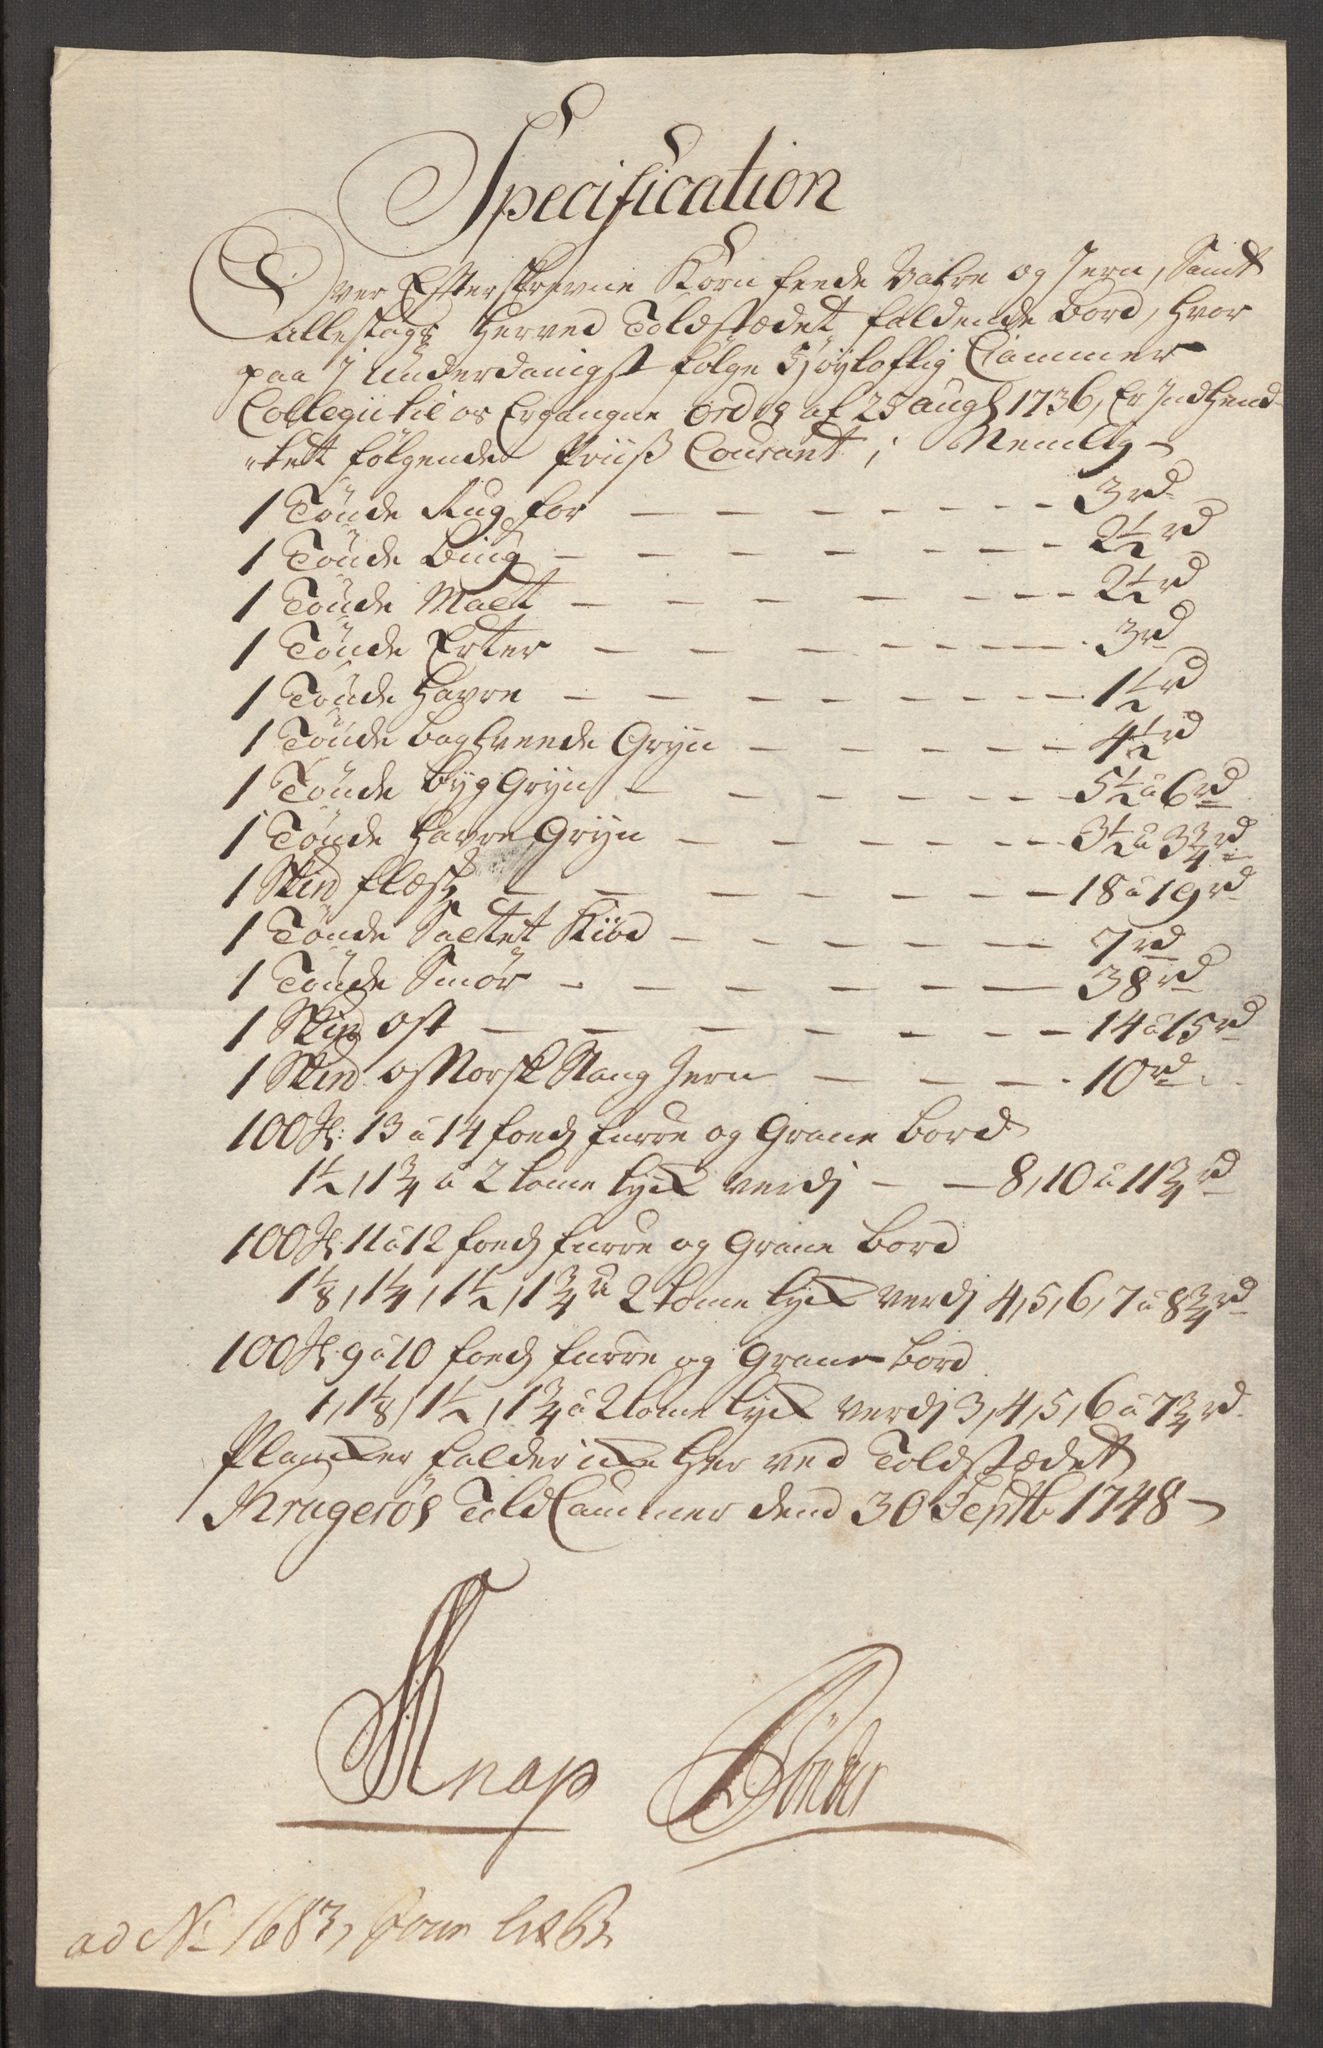 Specification
Over Efterskrevne Korn feede Vahre og Jern, Samt
alleslags herved Toldstædet faldende bord, hvor
paa J underdanigst følge Høyloflig Cammer
Collegii til os Ergangne ordre af 25 aug: 1736, Er Indhend-
tet følgende Priiß Courant; Nemlig
1 Tønde Rug for — 3 rd
1 Tønde biug — 2½ rd
1 Tønde Malt — 2½ rd
1 Tønde Erter — 3 rd
1 Tønde Havre — 1½ rd
1 Tønde boghveede Gryn — 4½ rd
1 Tønde byg Gryn — 5½ a 6 rd
1 Tønde Havre Gryn — 3½ a 3¾ rd
1 Skпd flæsk — 18 a 19 rd
1 Tønde Saltet Kiød — 7 rd
1 Tønde Smør — 38 rd
1 Skпd ost — 14 a 15 rd
1 Skпd Norsk Stang Jern — 10 rd
100 st: 13 a 14 foeds furre og Grane bord
1½, 1¾ a 2 tome tyck verdj — 8, 10 a 11¾ rd
100 st 11 a 12 foeds furre og Grane bord
1⅛, 1¼, 1½, 1¾ a 2 tome tyck verdj 4, 5, 6, 7 a 8¾ rd
100 st 9 a 10 foeds furre og Grane bord
1, 1⅛, 1½, 1¾ a 2 tome tyck verdj 3, 4, 5, 6 a 7¾ rd
Plancker falder icke her ved Toldstædet
Kragerøs Told Cammer dend 30 Septb 1748
Knap
ad No 1683, Jour